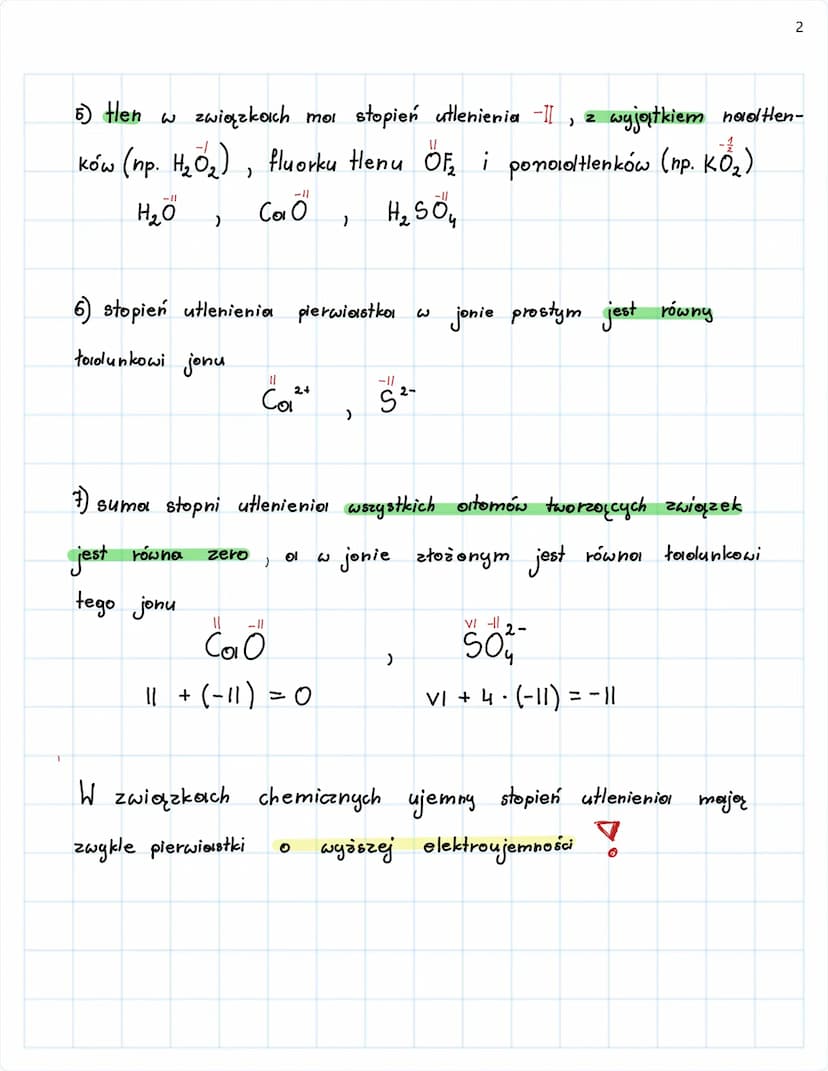 2
5) tlen w związkach ma stopień utlenienia -II , z wyjątkiem nadtlen-
ków (np. H₂O₂) , fluorku tlenu OF₂ i ponadtlenków (np. KO₂)
-I II -½
H₂O , CaO , H₂SO₄
-II -II -II
6) stopień utlenienia pierwiastka w jonie prostym jest równy
ładunkowi jonu
II -II
Ca²⁺ , S²⁻
7) suma stopni utlenienia wszystkich atomów tworzących związek
jest równa zero , a w jonie złożonym jest równa ładunkowi
tego jonu
II -II VI -II
CaO , SO₄²⁻
II + (-II) = 0 VI + 4 · (-II) = -II
W związkach chemicznych ujemny stopień utlenienia mają
zwykle pierwiastki o wyższej elektroujemności !